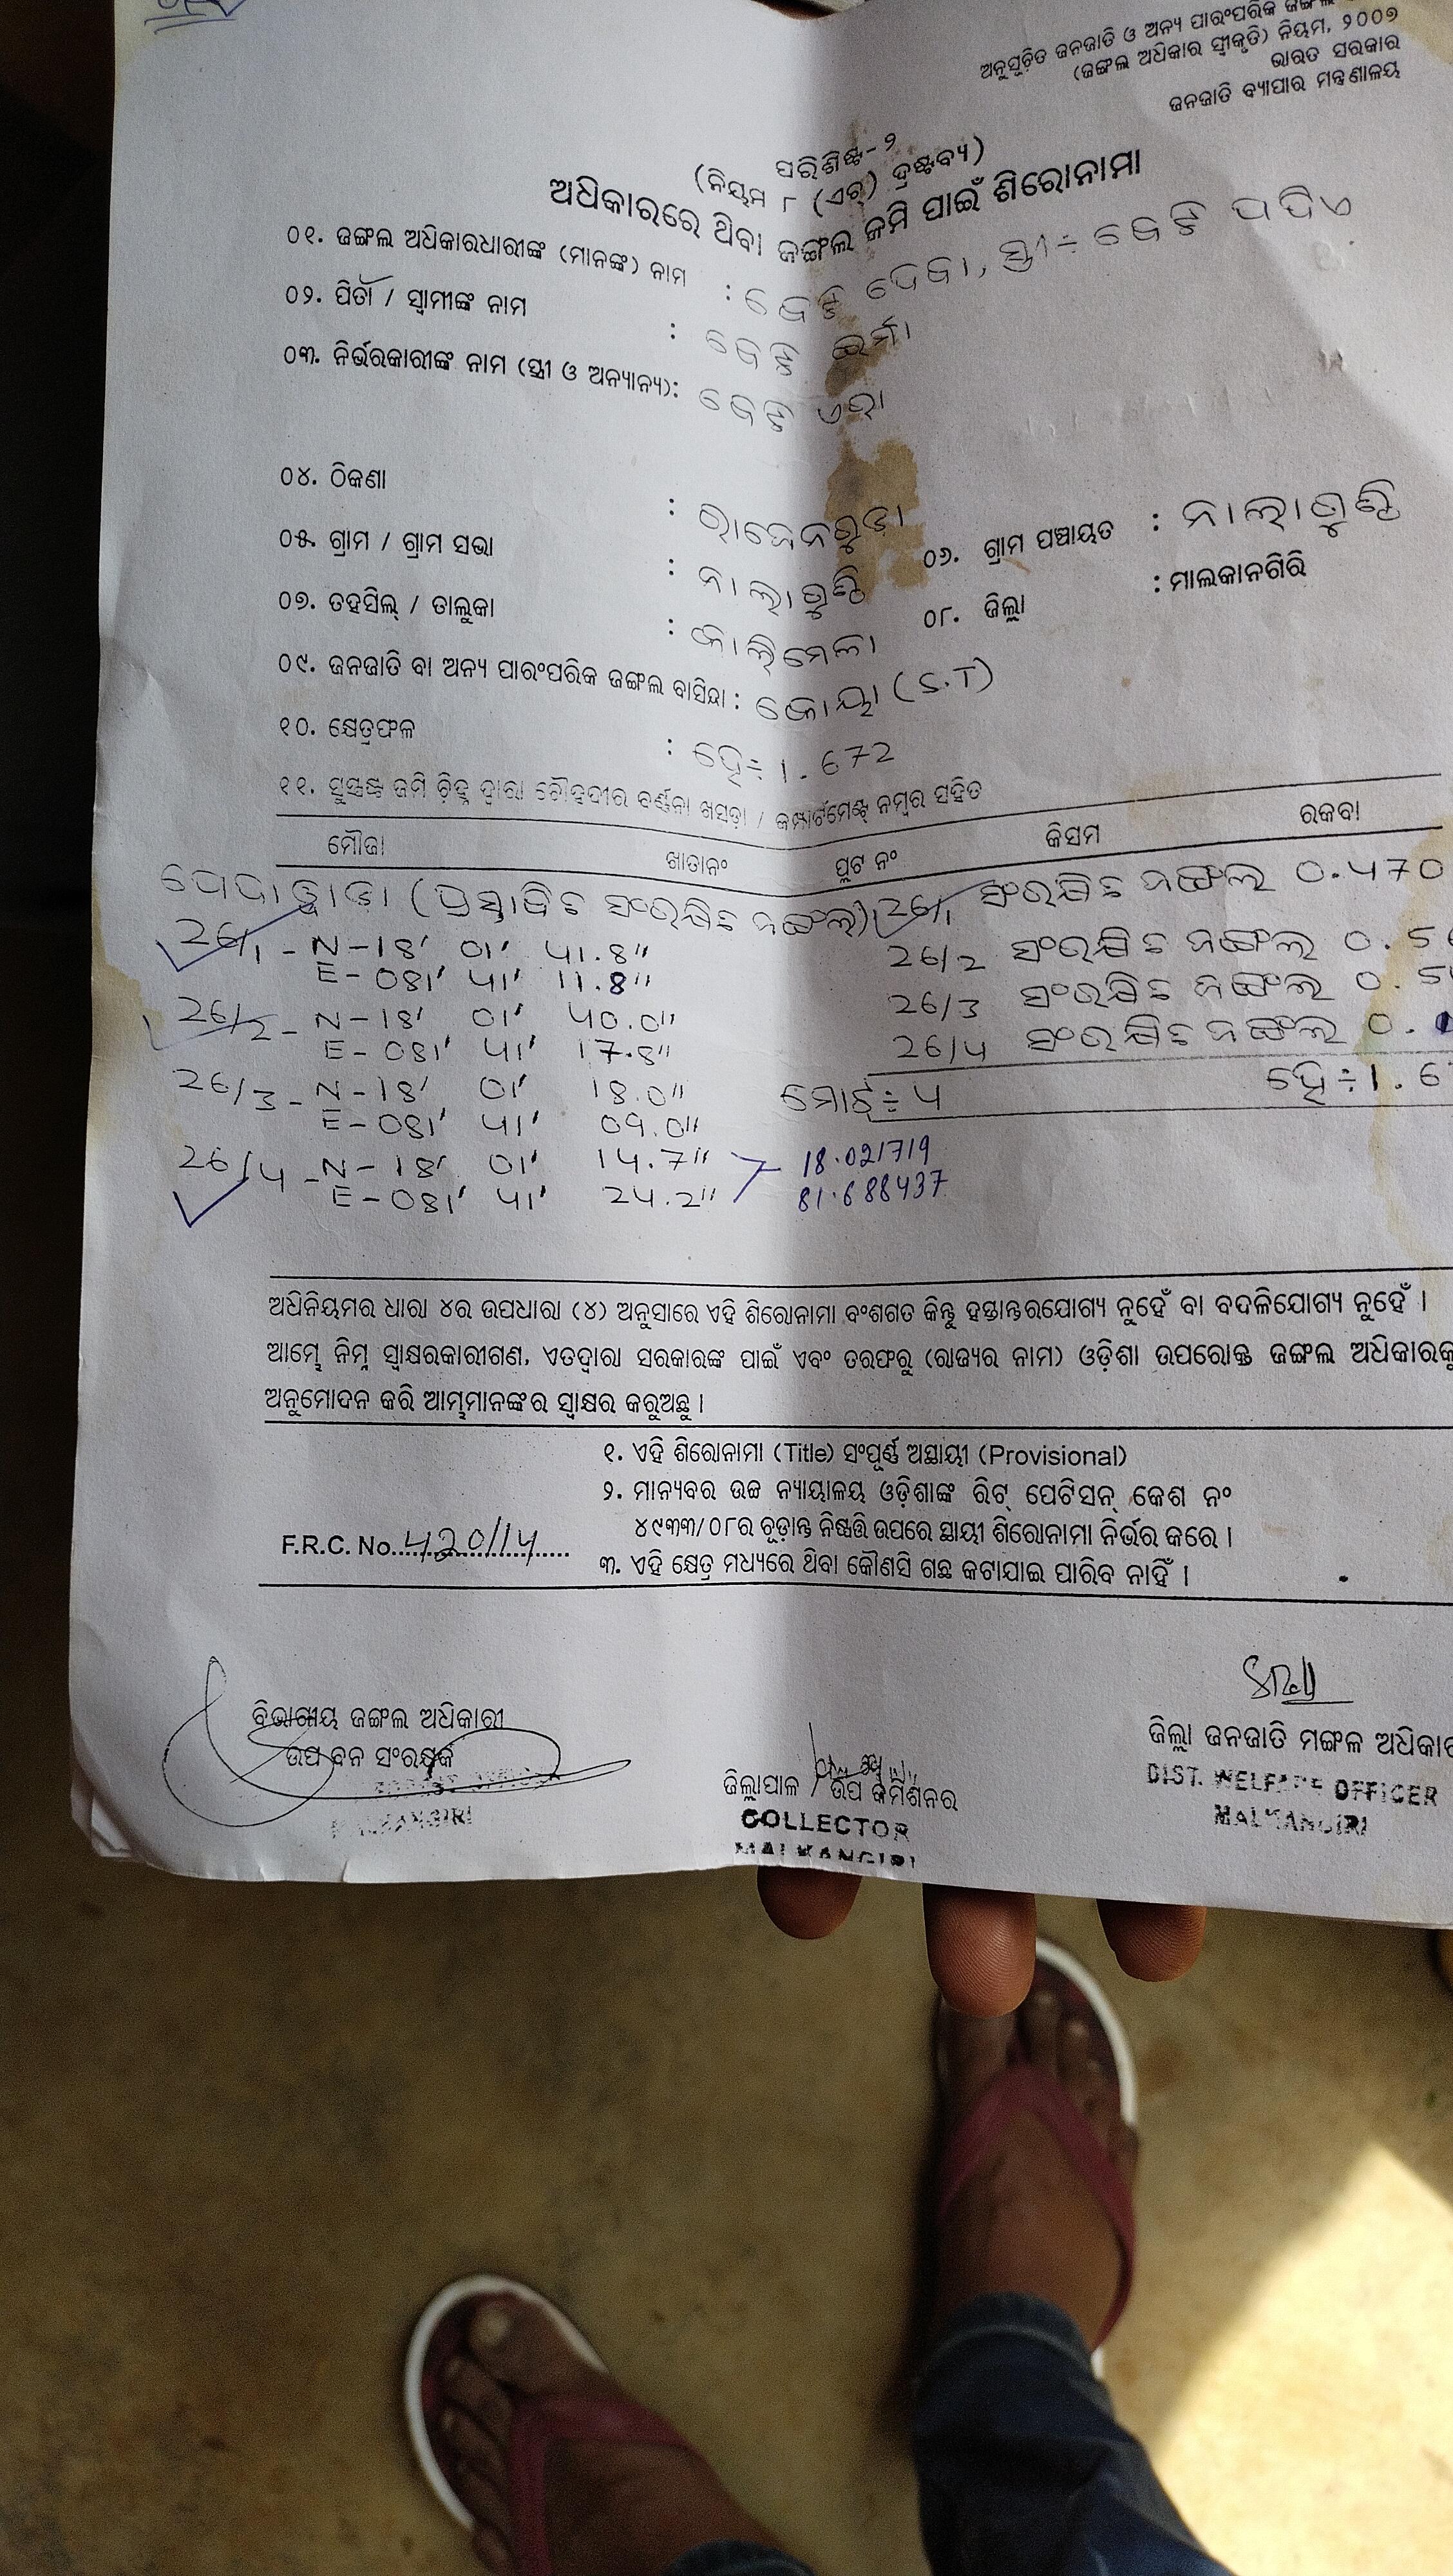 ଅନୁସୂଚିତ ଜନଜାତି ଓ ଅନ୍ୟ ପାରଂପରିକ ଜଙ୍ଗଲ
(ଜଙ୍ଗଲ ଅଧିକାର ସ୍ୱୀକୃତି) ନିୟମ, ୨୦୦୭
ଭାରତ ସରକାର
ଜନଜାତି ବ୍ୟାପାର ମନ୍ତ୍ରଣାଳୟ
ପରିଶିଷ୍ଟ-୨
(ନିୟମ ୮ (ଏଚ୍) ଦ୍ରଷ୍ଟବ୍ୟ)
ଅଧିକାରରେ ଥିବା ଜଙ୍ଗଲ ଜମି ପାଇଁ ଶିରୋନାମା
୦୧. ଜଙ୍ଗଲ ଅଧିକାରଧାରୀଙ୍କ (ମାନଙ୍କ) ନାମ : ସ୍ତ୍ରୀ÷
୦୨. ପିତା / ସ୍ୱାମୀଙ୍କ ନାମ :
୦୩. ନିର୍ଭରକାରୀଙ୍କ ନାମ (ସ୍ତ୍ରୀ ଓ ଅନ୍ୟାନ୍ୟ):
୦୪. ଠିକଣା :
୦୫. ଗ୍ରାମ / ଗ୍ରାମ ସଭା : ନାଲାଗୁଣ୍ଠି ୦୬. ଗ୍ରାମ ପଞ୍ଚାୟତ : ନାଲାଗୁଣ୍ଠି
୦୭. ତହସିଲ୍ / ତାଲୁକା : କାଲିମେଳା ୦୮. ଜିଲ୍ଲା : ମାଲକାନଗିରି
୦୯. ଜନଜାତି ବା ଅନ୍ୟ ପାରଂପରିକ ଜଙ୍ଗଲ ବାସିନ୍ଦା : କୋୟା (S.T)
୧୦. କ୍ଷେତ୍ରଫଳ : ହେ÷ 1.672
୧୧. ସୁସ୍ପଷ୍ଟ ଜମି ଚିହ୍ନ ଦ୍ୱାରା ଚୌହଦୀର ବର୍ଣ୍ଣନା ଖସଡ଼ା / କମ୍ପାର୍ଟମେଣ୍ଟ୍ ନମ୍ବର ସହିତ
ମୌଜା ଖାତାନଂ ପ୍ଲଟ ନଂ କିସମ ରକବା
(ପ୍ରସ୍ତାବିତ ସଂରକ୍ଷିତ ଜଙ୍ଗଲ) 26/1 ସଂରକ୍ଷିତ ଜଙ୍ଗଲ 0.470
26/1 - N-18' 01' 41.8" 26/2 ସଂରକ୍ଷିତ ଜଙ୍ଗଲ
E-081' 41' 11.8" 26/3 ସଂରକ୍ଷିତ ଜଙ୍ଗଲ
26/2 - N-18' 01' 40.0" 26/4 ସଂରକ୍ଷିତ ଜଙ୍ଗଲ
E-081' 41' 17.8"
26/3 - N-18' 01' 18.0" ମୋଟ÷ 4 ହେ÷1.6
E-081' 41' 09.0"
26/4 - N-18' 01' 14.7" 18.021719
E-081' 41' 24.2" 81.688437
ଅଧିନିୟମର ଧାରା ୪ର ଉପଧାରା (୪) ଅନୁସାରେ ଏହି ଶିରୋନାମା ବଂଶଗତ କିନ୍ତୁ ହସ୍ତାନ୍ତରଯୋଗ୍ୟ ନୁହେଁ ବା ବଦଳିଯୋଗ୍ୟ ନୁହେଁ ।
ଆମ୍ଭେ ନିମ୍ନ ସ୍ୱାକ୍ଷରକାରୀଗଣ, ଏତଦ୍ୱାରା ସରକାରଙ୍କ ପାଇଁ ଏବଂ ତରଫରୁ (ରାଜ୍ୟର ନାମ) ଓଡ଼ିଶା ଉପରୋକ୍ତ ଜଙ୍ଗଲ ଅଧିକାରକୁ
ଅନୁମୋଦନ କରି ଆମ୍ଭମାନଙ୍କର ସ୍ୱାକ୍ଷର କରୁଅଛୁ ।
୧. ଏହି ଶିରୋନାମା (Title) ସଂପୂର୍ଣ୍ଣ ଅସ୍ଥାୟୀ (Provisional)
୨. ମାନ୍ୟବର ଉଚ୍ଚ ନ୍ୟାୟାଳୟ ଓଡ଼ିଶାଙ୍କ ରିଟ୍ ପେଟିସନ୍ କେଶ ନଂ
୪୯୩୩/୦୮ର ଚୂଡ଼ାନ୍ତ ନିଷ୍ପତ୍ତି ଉପରେ ସ୍ଥାୟୀ ଶିରୋନାମା ନିର୍ଭର କରେ ।
F.R.C. No. 420/14
୩. ଏହି କ୍ଷେତ୍ର ମଧ୍ୟରେ ଥିବା କୌଣସି ଗଛ କଟାଯାଇ ପାରିବ ନାହିଁ ।
ବିଭାଗୀୟ ଜଙ୍ଗଲ ଅଧିକାରୀ
ଉପ ବନ ସଂରକ୍ଷକ
MALKANGIRI
ଜିଲ୍ଲାପାଳ / ଉପ କମିଶନର
COLLECTOR
MALKANGIRI
ଜିଲ୍ଲା ଜନଜାତି ମଙ୍ଗଳ
DIST. WELFARE OFFICER
MALKANGIRI